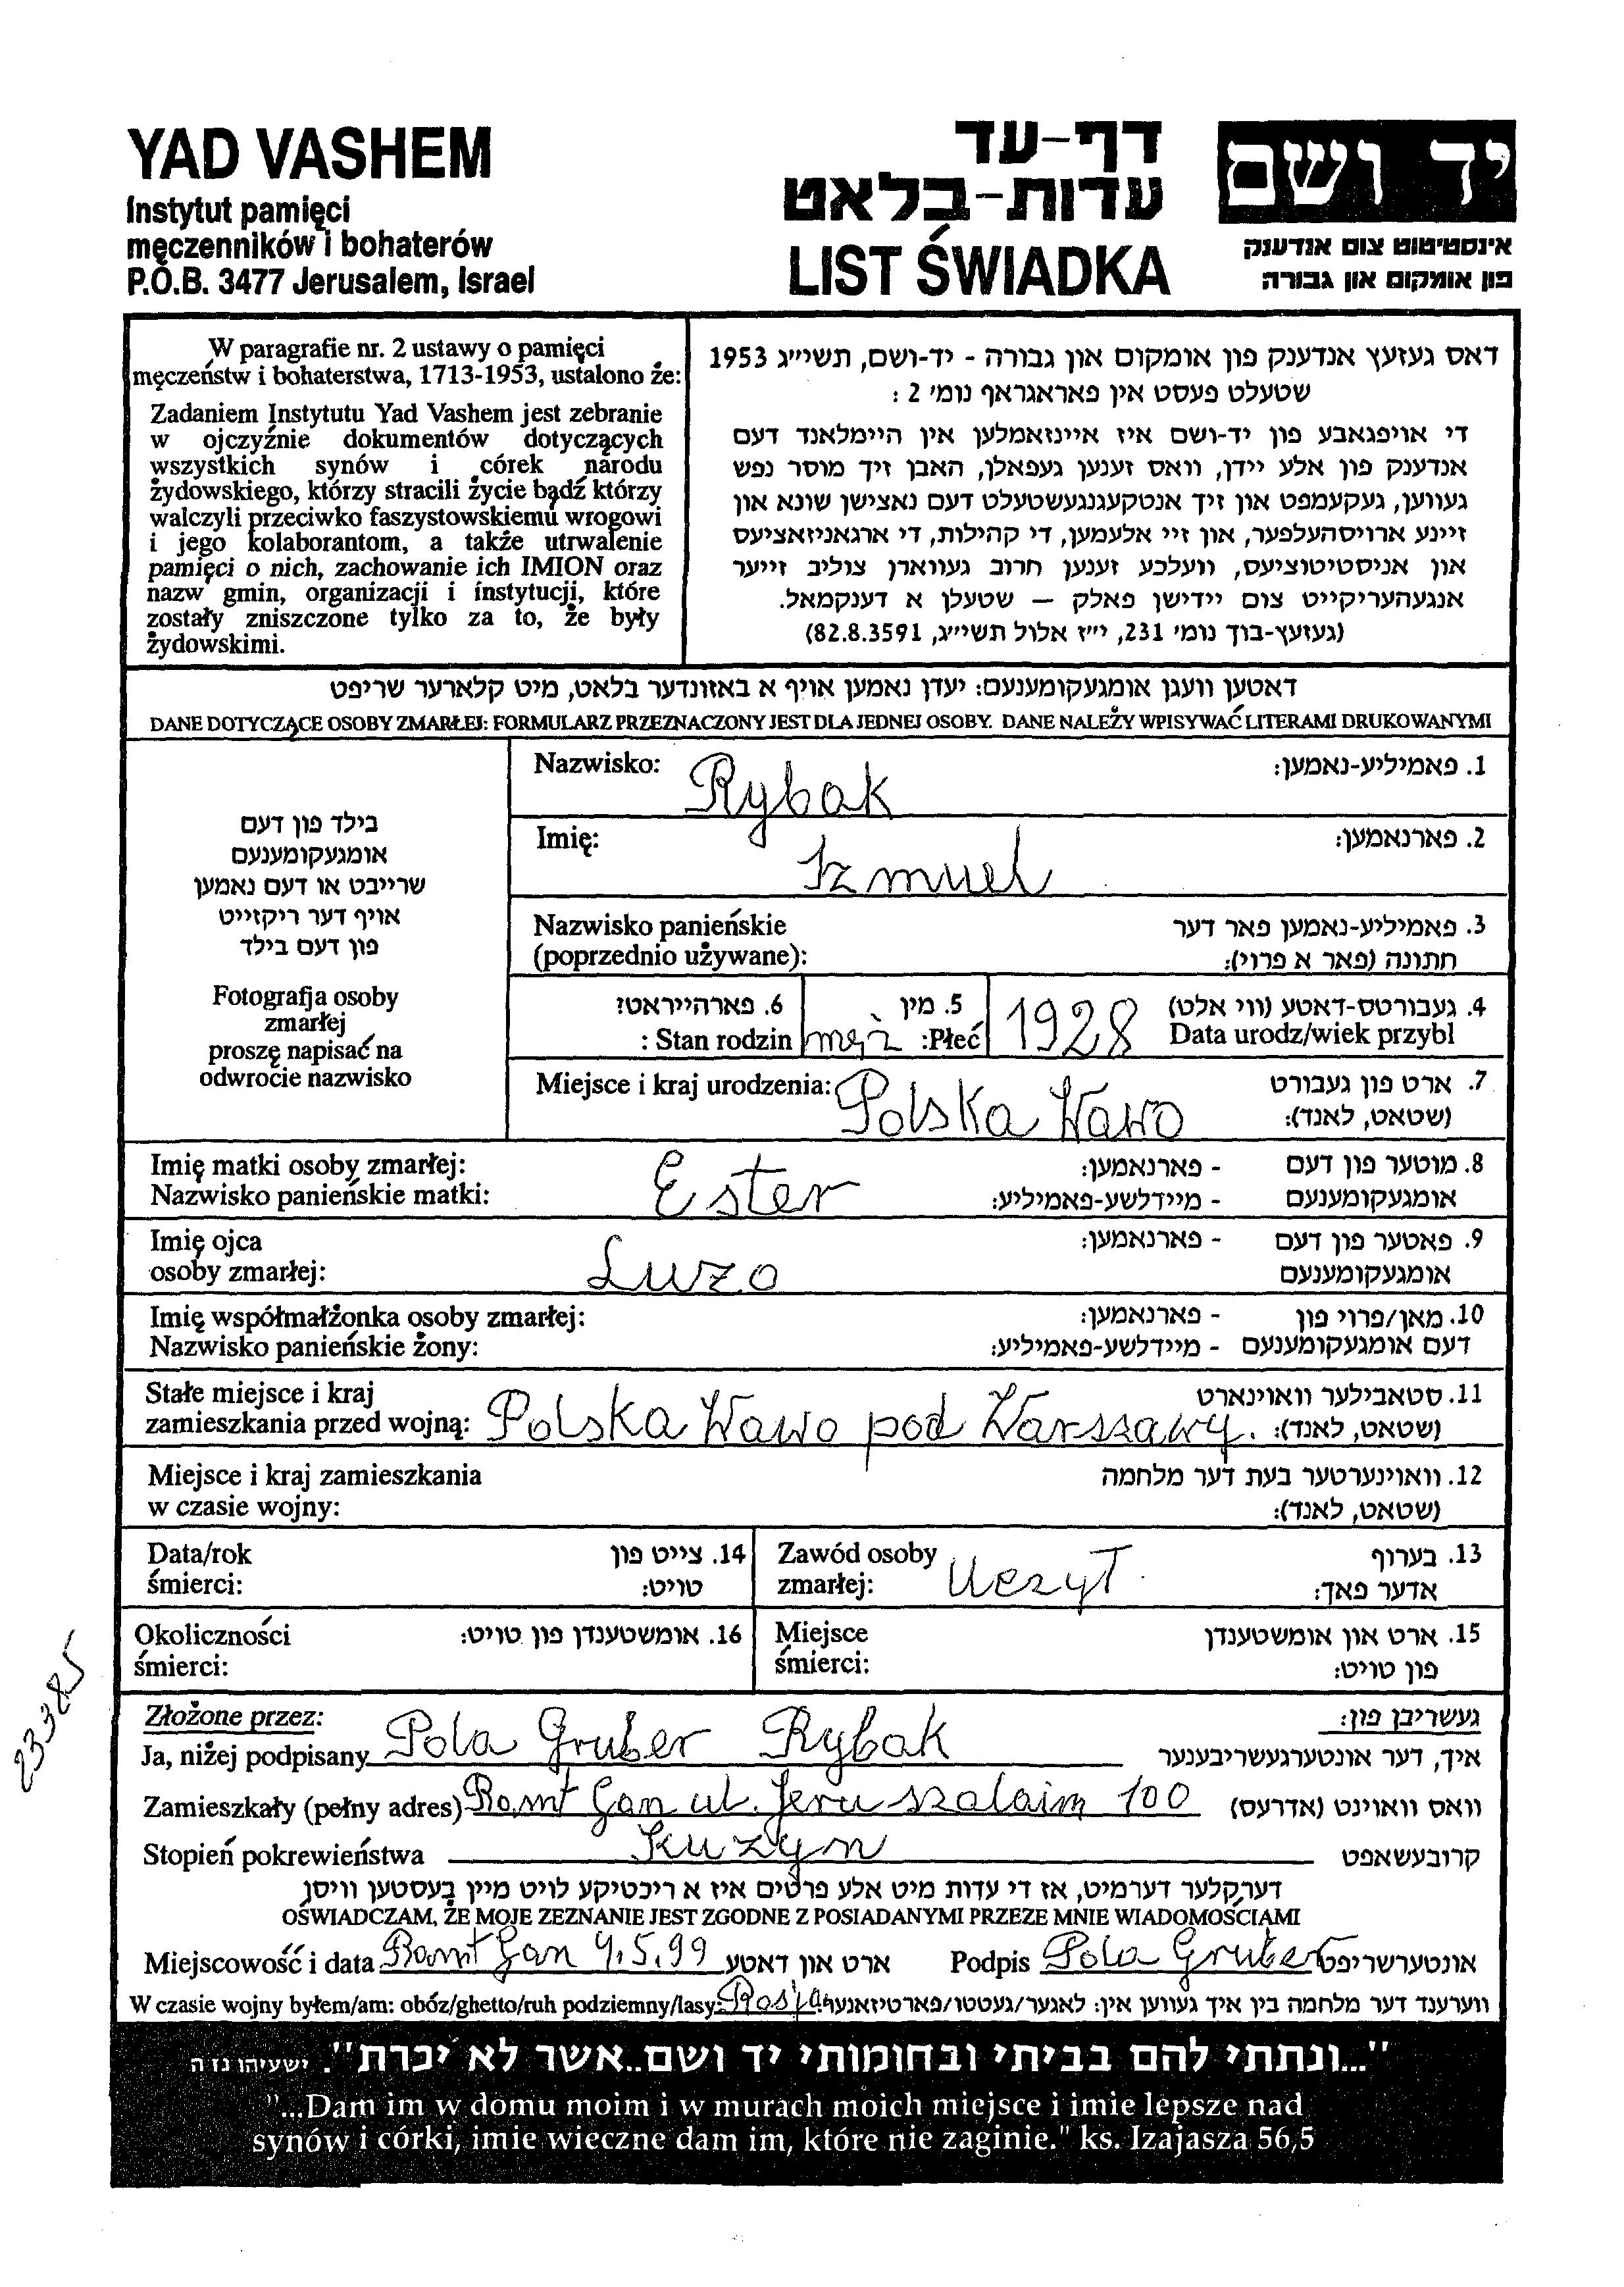 YAD VASHEM
Instytut pamięci
męczenników i bohaterów
P.O.B. 3477 Jerusalem, Israel
דף-עד
עדות-בלאט
LIST ŚWIADKA
יד ושם
אינסטיטוט צום אנדענק
פון אומקום און גבורה
W paragrafie nr. 2 ustawy o pamięci
męczeństw i bohaterstwa, 1713-1953, ustalono że:
Zadaniem Instytutu Yad Vashem jest zebranie
w ojczyźnie dokumentów dotyczących
wszystkich synów i córek narodu
żydowskiego, którzy stracili życie bądź którzy
walczyli przeciwko faszystowskiemu wrogowi
i jego kolaborantom, a także utrwalenie
pamięci o nich, zachowanie ich IMION oraz
nazw gmin, organizacji i instytucji, które
zostały zniszczone tylko za to, że były
żydowskimi.
דאס געזעץ אנדענק פון אומקום און גבורה - יד-ושם, תשי״ג 1953
שטעלט פעסט אין פאראגראף נומ׳ 2 :
די אויפגאבע פון יד-ושם איז איינזאמלען אין היימלאנד דעם
אנדענק פון אלע יידן, וואס זענען געפאלן, האבן זיך מוסר נפש
געווען, געקעמפט און זיך אנטקעגנגעשטעלט דעם נאצישן שונא און
זיינע ארויסהעלפער, און זיי אלעמען, די קהילות, די ארגאניזאציעס
און אניסטיטוציעס, וועלכע זענען חרוב געווארן צוליב זייער
אנגעהעריקייט צום יידישן פאלק – שטעלן א דענקמאל.
(געזעץ-בוך נומ׳ 231, י״ז אלול תשי״ג, 82.8.3591)
דאטען וועגן אומגעקומענעם: יעדן נאמען אויף א באזונדער בלאט, מיט קלארער שריפט
DANE DOTYCZĄCE OSOBY ZMARŁEJ: FORMULARZ PRZEZNACZONY JEST DLA JEDNEJ OSOBY. DANE NALEŻY WPISYWAĆ LITERAMI DRUKOWANYMI
בילד פון דעם
אומגעקומענעם
שרייבט או דעם נאמען
אויף דער ריקזייט
פון דעם בילד
Fotografja osoby
zmarłej
proszę napisać na
odwrocie nazwisko
Nazwisko: Rybak 1. פאמיליע-נאמען:
Imię: Szmuel 2. פארנאמען:
Nazwisko panieńskie 3. פאמיליע-נאמען פאר דער
(poprzednio używane): חתונה (פאר א פרוי):
6. פארהייראט? 5. מין 4. געבורטס-דאטע (ווי אלט)
: Stan rodzin męż :Płeć 1928 Data urodz/wiek przybl
Miejsce i kraj urodzenia: Polska Wawo 7. ארט פון געבורט
(שטאט, לאנד):
Imię matki osoby zmarłej: Ester - פארנאמען: 8. מוטער פון דעם
Nazwisko panieńskie matki: - מיידלשע-פאמיליע: אומגעקומענעם
Imię ojca - פארנאמען: 9. פאטער פון דעם
osoby zmarłej: Luzo אומגעקומענעם
Imię współmałżonka osoby zmarłej: - פארנאמען: 10. מאן/פרוי פון
Nazwisko panieńskie żony: - מיידלשע-פאמיליע: דעם אומגעקומענעם
Stałe miejsce i kraj 11. סטאבילער וואוינארט
zamieszkania przed wojną: Polska Wawo pod Warszawy. (שטאט, לאנד):
Miejsce i kraj zamieszkania 12. וואוינערטער בעת דער מלחמה
w czasie wojny: (שטאט, לאנד):
Data/rok 14. צייט פון Zawód osoby 13. בערוף
śmierci: טויט: zmarłej: Uczył אדער פאך:
Okoliczności 16. אומשטענדן פון טויט: Miejsce 15. ארט און אומשטענדן
śmierci: śmierci: פון טויט:
23385
Złożone przez: געשריבן פון:
Ja, niżej podpisany Pola Gruber Rybak איך, דער אונטערגעשריבענער
Zamieszkały (pełny adres) Ramt Gan ul. Jeruszalaim 100 וואס וואוינט (אדרעס)
Stopień pokrewieństwa Kuzyn קרובעשאפט
דערקלער דערמיט, אז די עדות מיט אלע פרטים איז א ריכטיקע לויט מיין בעסטען וויסן
OŚWIADCZAM, ŻE MOJE ZEZNANIE JEST ZGODNE Z POSIADANYMI PRZEZE MNIE WIADOMOŚCIAMI
Miejscowość i data Ramt Gan 4.5.99 ארט און דאטע Podpis Pola Gruber אונטערשריפט
W czasie wojny byłem/am: obóz/ghetto/ruh podziemny/lasy: Rosja ווערענד דער מלחמה בין איך געווען אין: לאגער/געטטו/פארטיזאנער
"...ונתתי להם בביתי ובחומותי יד ושם..אשר לא יכרת". ישעיהו נו ה
"...Dam im w domu moim i w murach moich miejsce i imie lepsze nad
synów i córki, imie wieczne dam im, które nie zaginie." ks. Izajasza 56,5